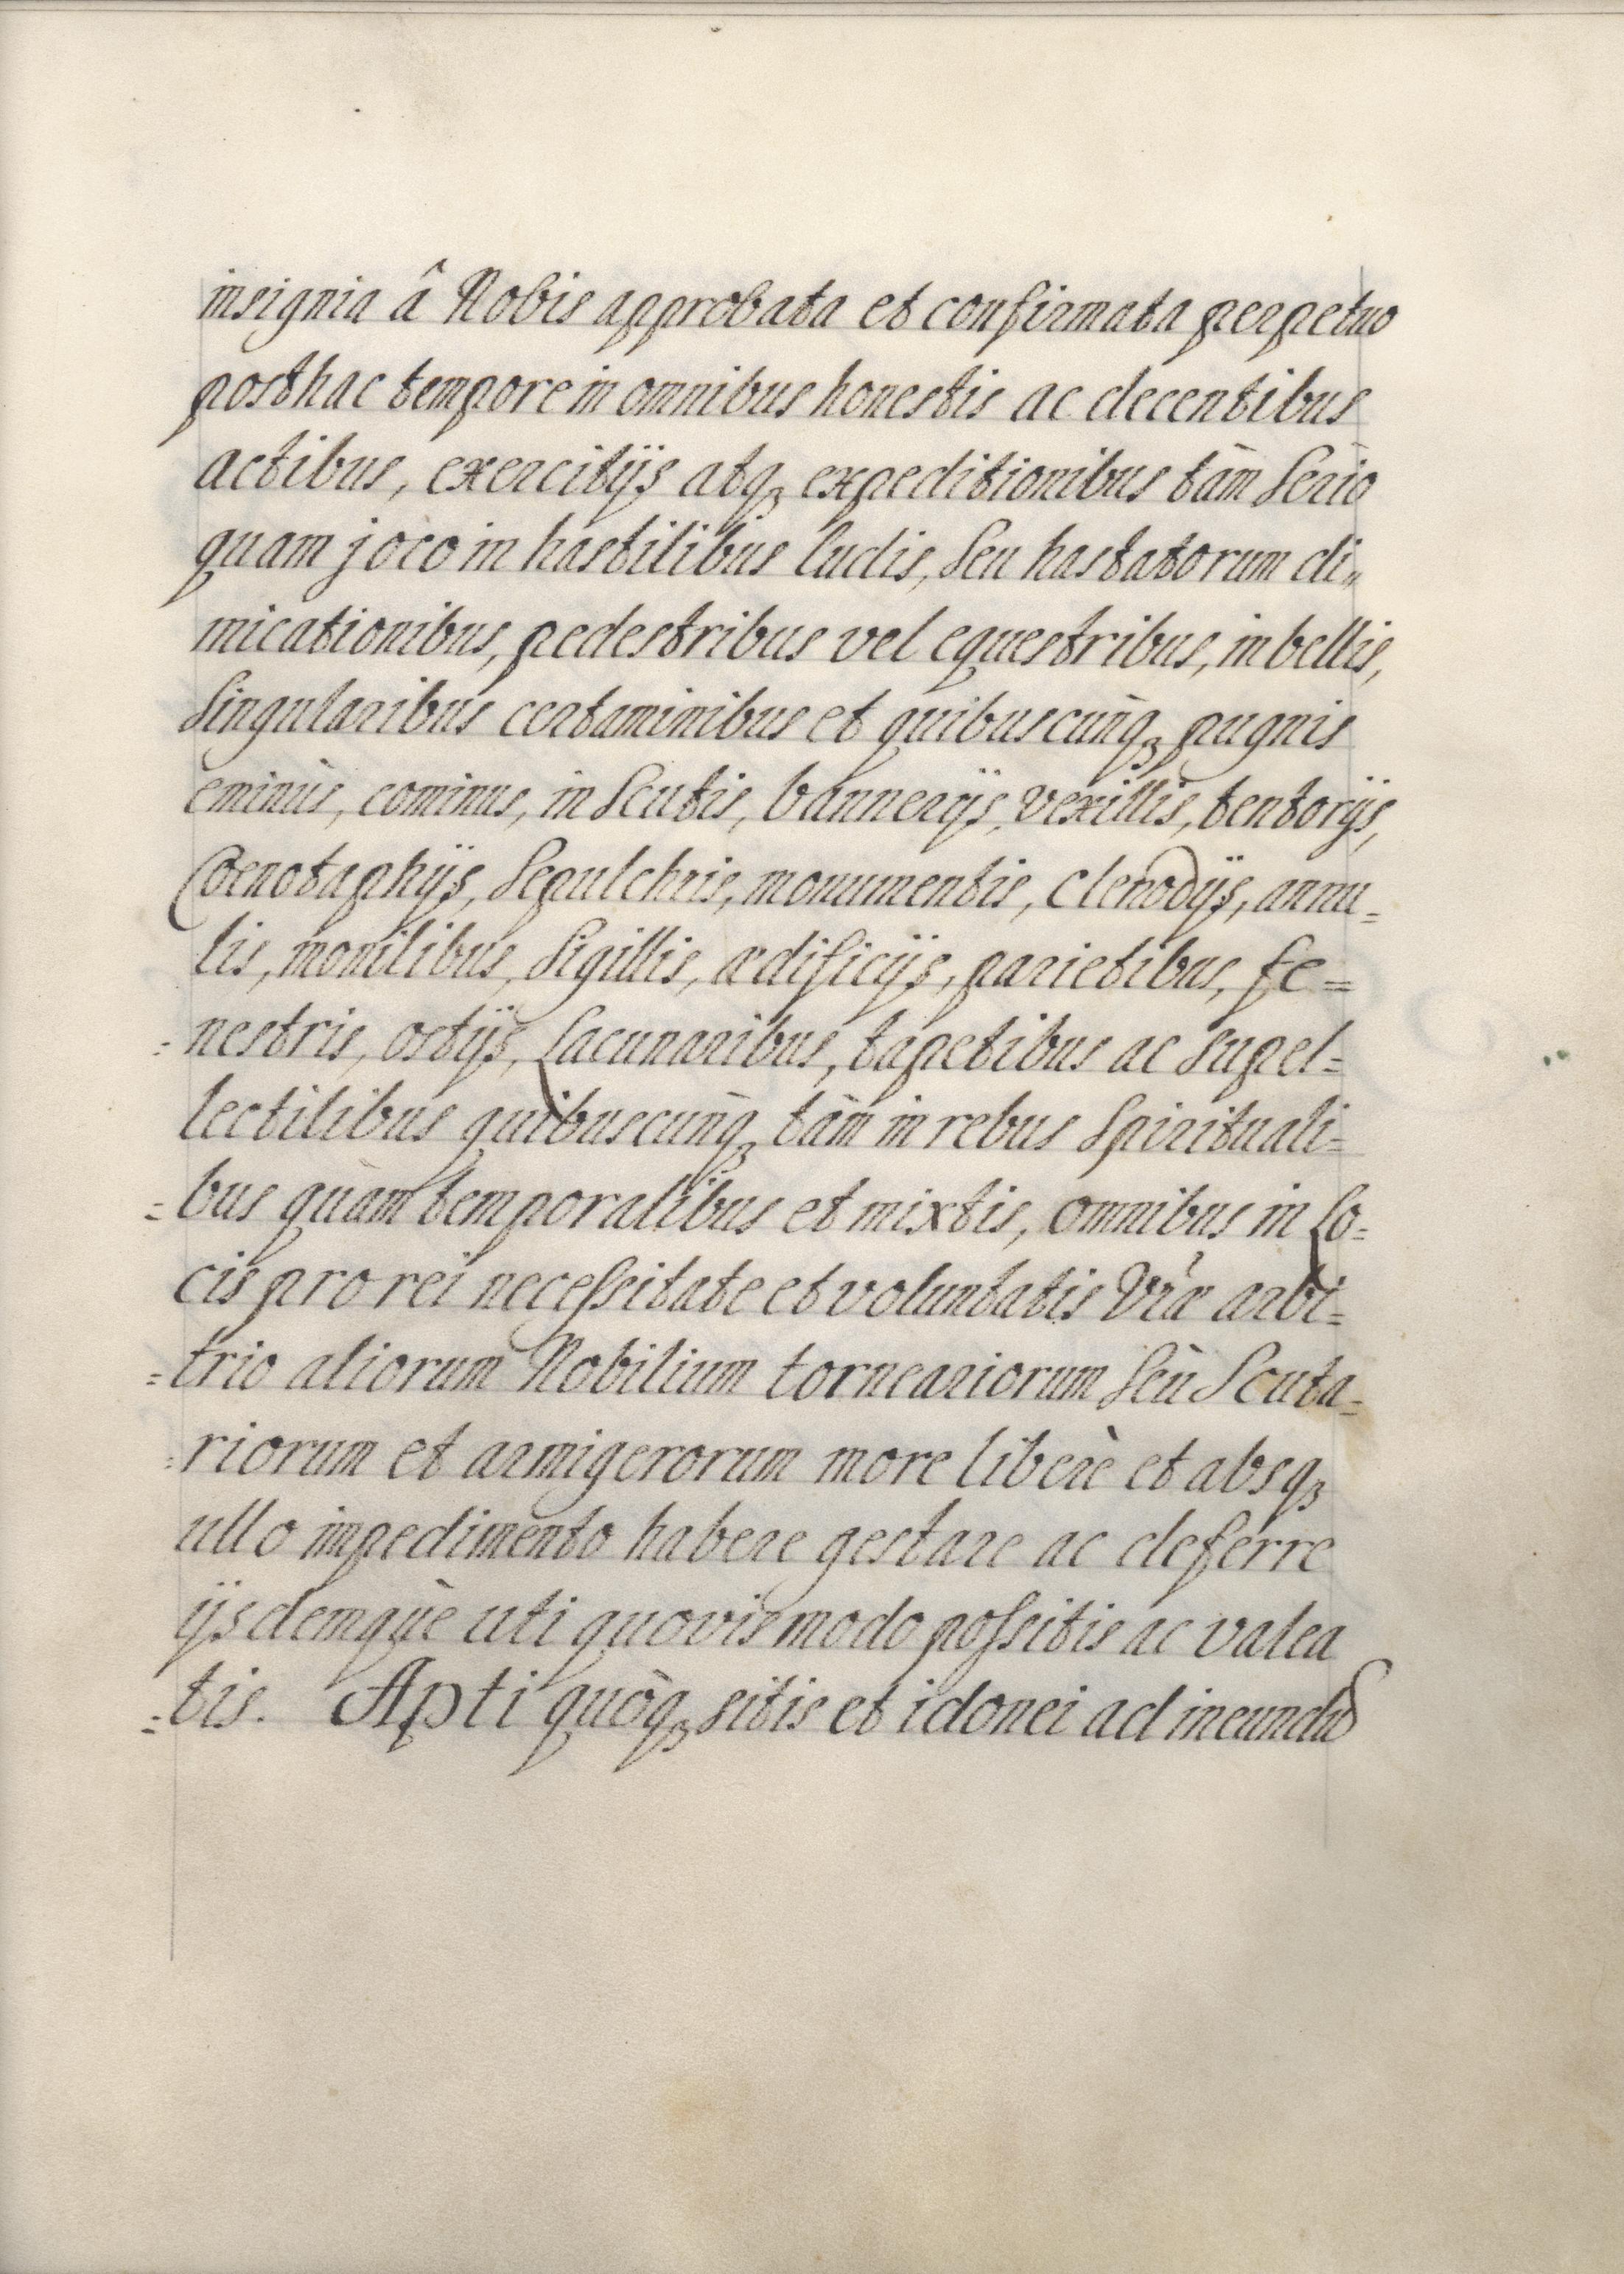 insignia â Nobis approbata et confirmata perpetuo
posthac tempore in omnibus honestis ac decentibus
actibus, exercitÿs atq₃ expeditionibus tàm Seriò
quam joco in hastilibus ludis, Seu hastatorum di„
micationibus, pedestribus vel equestribus, in bellis,
Singularibus certaminibus et quibuscunq₃ pugnis
eminùs, cominus, in Scutis, bannerÿs, vexillis, tentorÿs,
Coenotaphÿs, Sepulchris, monumentis, Clenodÿs, annu=
lis, monilibus, Sigillis, ædificÿs, parietibus, fe=
=nestris, ostÿs, lacunaribus, tapetibus ac supel=
lectilibus quibuscunq₃ tàm in rebus Spirituali=
=bus quàm temporalibus et mixtis, omnibus in lo=
cis pro rei necessitate et voluntatis Vræ arbi=
=trio aliorum Nobilium torneariorum Seù Scuta=
=riorum et armigerorum more liberè et absq₃
ullo impedimento habere gestare ac deferre
ÿsdemquè uti quovis modo possitis ac valea
=tis. Apti quòq₃ sitis et idonei ad ineundũ